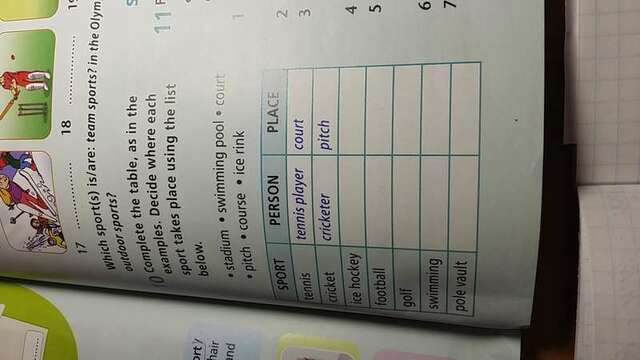 17 ............
18 ............
19
Which sport(s) is/are: team sports? in the Olym
outdoor sports?
Complete the table, as in the
examples. Decide where each
sport takes place using the list
below.
• stadium • swimming pool • court
• pitch • course • ice rink
SPORT PERSON PLACE
tennis tennis player court
cricket cricketer pitch
ice hockey
football
golf
swimming
pole vault
S
11 F
1
2
3
4
5
6
7
ort/
hair
and